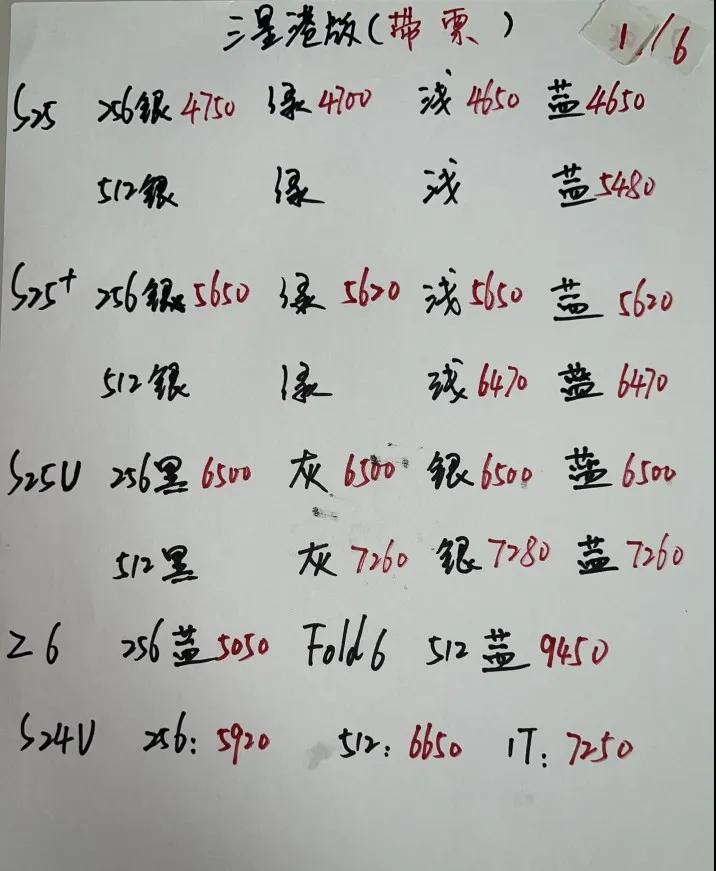 三星港版(带票) 1/6
S25 256銀4750 绿4700 浅4650 蓝4650
512銀 绿 浅 蓝5480
S25+ 256銀5650 绿5620 浅5650 蓝5620
512銀 绿 浅6470 蓝6470
S25U 256黑6500 灰6500 銀6500 蓝6500
512黑 灰7260 銀7280 蓝7260
Z6 256蓝5050 Fold6 512蓝9450
S24U 256:5920 512:6650 1T:7250